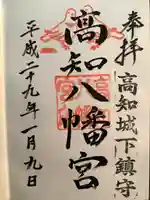 奉拝
高知城下鎮守
高知八幡宮
平成二十九年一月九日